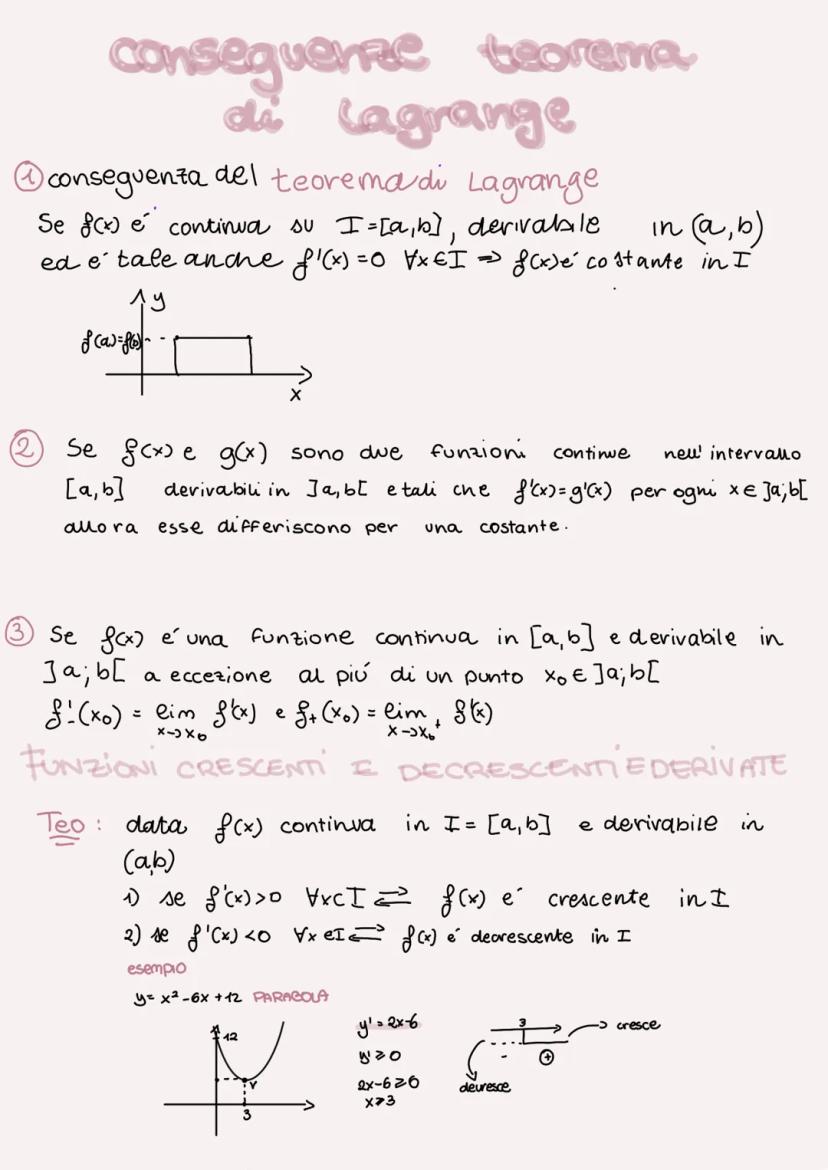 conseguenze teorema
di Lagrange
① conseguenza del teorema di Lagrange
Se f(x) e´ continua su I=[a,b], derivabile in (a,b)
ed e´ tale anche f'(x)=0 ∀x∈I ⇒ f(x) e´ costante in I
y
f(a)=f(b)
x
② Se f(x) e g(x) sono due funzioni continue nell'intervallo
[a,b] derivabili in ]a,b[ e tali che f'(x)=g'(x) per ogni x∈]a;b[
allora esse differiscono per una costante.
③ Se f(x) e´ una funzione continua in [a,b] e derivabile in
]a;b[ a eccezione al piú di un punto x₀∈]a;b[
f'₋(x₀) = lim f'(x) e f₊(x₀) = lim f'(x)
x→x₀ x→x₀⁺
FUNZIONI CRESCENTI E DECRESCENTI E DERIVATE
Teo: data f(x) continua in I=[a,b] e derivabile in
(a,b)
1) se f'(x)>0 ∀x⊂I ⇄ f(x) e´ crescente in I
2) se f'(x)<0 ∀x∈I ⇄ f(x) e´ decrescente in I
esempio
y=x²-6x+12 PARABOLA
12
V
3
y'=2x-6
y'≥0
2x-6≥0
x≥3
3
cresce
- +
decresce